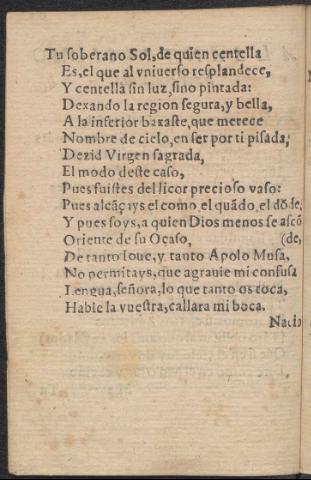 Tu soberano Sol, de quien centella
Es, el que al vniuerso resplandece,
Y centella sin luz, sino pintada:
Dexando la region segura, y bella,
A la inferior baxaste, que merece
Nombre de cielo, en ser por ti pisada;
Dezid Virgen sagrada,
El modo deste caso,
Pues fuistes del licor precioso vaso:
Pues alcãçays el como, el quãdo, el dõde,
Y pues soys, a quien Dios menos se ascõ
Oriente de su Ocaso, (de,
De tanto Ioue, y tanto Apolo Musa,
No permitays, que agrauie mi confusa
Lengua, señora, lo que tanto os toca,
Hable la vuestra, callara mi boca.
Nacio